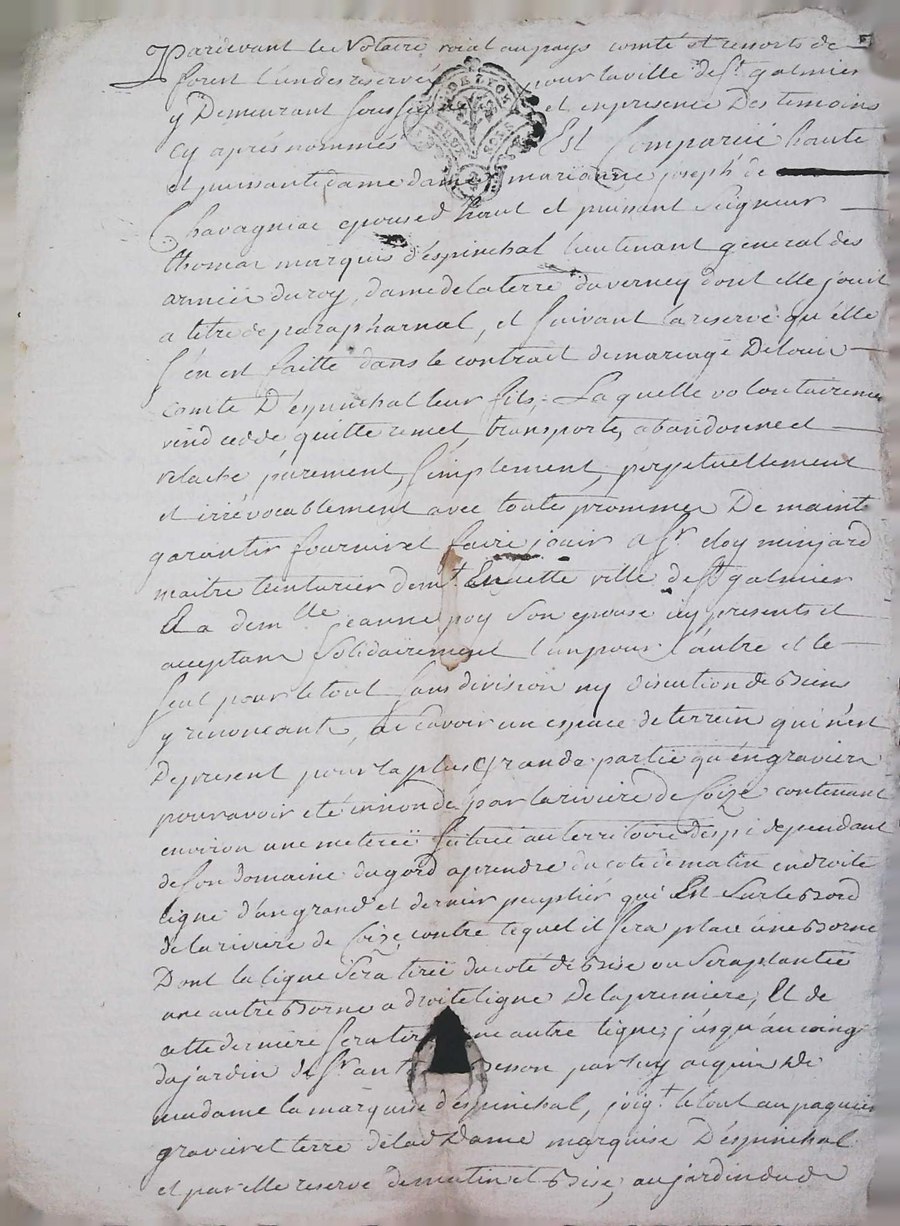 Pardevant le Notaire roial au pays comté et ressorts de
forest l'un des reservés pour la ville de St galmier
y Demeurant soussigné et en presence Des temoins
cy aprés nommés Est Comparüe haute
et puissante dame dame marianne joseph de
Chavagniac epouse d haut et puissant Seigneur
thomas marquis d'espinchal lieutenant général des
armées du roy, dame de la terre daverney dont elle jouit
a titre de paraphernal, et suivant la reserve qu'elle
s'en est faitte dans le contrait de mariage De louis
comte D'espinchal leur fils; Laquelle volontairemen
vend cedde quitte remet, transporte, abandonne et
relache purement, simplement, perpetuellement
et irrévocablement avec toutes prommes De maint
garantir fournir et faire jouir a Sr eloy minjard
maitre teinturier demt En cette ville de St galmier
Et a demlle jeanne poy Son epouse icy presents et
acceptans Solidairement l'un pour l'autre et le
seul pour le tout sans division ny discution de Biens
y renoncants, de scavoir un espace de terrein qui n'est
De present pour la plus Grande partie qu'en graviers
pour avoir eté innondé par la riviere de Coize contenant
environ une meteréé située au territoire despi dependant
de son domaine du gord a prendre du coté de matin en droite
ligne d'un grand et dernier peuplier qui Est sur le Bord
de la riviere de Coize, contre lequel il sera placé une Borne
Dont la ligne sera tirée du coté de Bise ou sera plantée
une autre Borne a droite ligne De la premiere; Et de
cette derniere sera tir ne autre ligne; jusqu'au coing
du jardin de Sr ant esson par luy acquis De
madame la marquise d'espinchal, joigt le tout au paquier
gravier et terre de lad Dame marquise D'espinchal
et par elle reservé de matin et Bise; au jardin dud